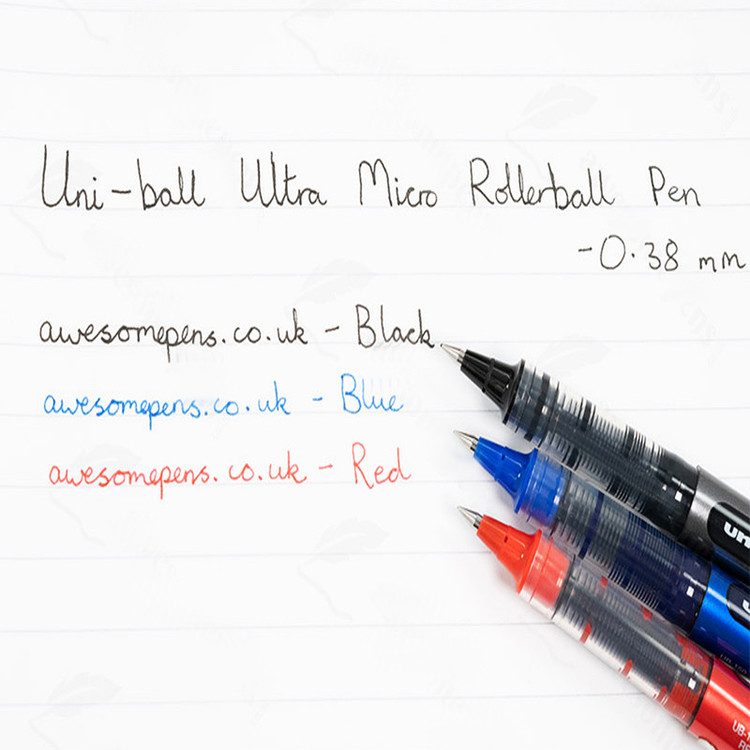 Uni-ball Ultra Micro Rollerball Pen
-0.38 mm
awesomepens.co.uk - Black
awesomepens.co.uk - Blue
awesomepens.co.uk - Red